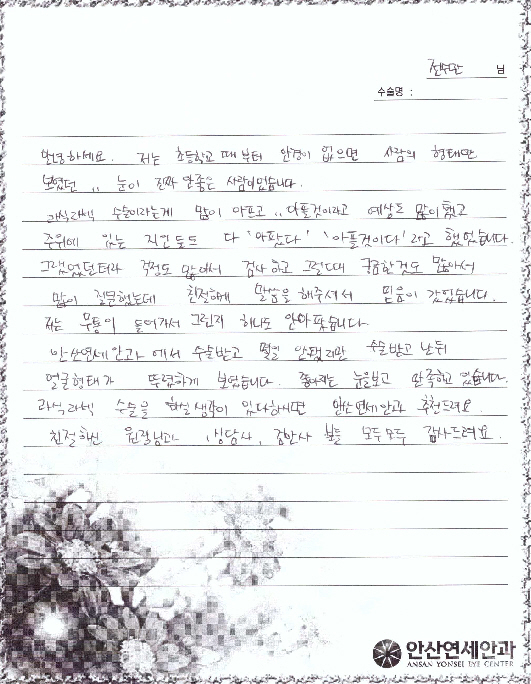 님
수술명 :
안녕하세요. 저는 초등학교 때부터 안경이 없으면 사람의 형태만
보였던 .. 눈이 진짜 안좋은 사람이었습니다.
라식라섹 수술이라는게 많이 아프고.. 아플것이라고 예상도 많이했고
주위에 있는 지인들도 다 '아팠다' '아플것이다' 라고 했었습니다.
그랬었던터라 걱정도 많아서 검사하고 그럴때 궁금한것도 많아서
많이 질문했는데 친절하게 말씀을 해주셔서 믿음이 갔었습니다.
저는 무통이 들어가서 그런지 하나도 안아팠습니다
안산연세안과에서 수술받고 몇일 안됐지만 수술받고 난뒤
얼굴형태가 뚜렷하게 보였습니다. 좋아지는 눈을보고 만족하고 있습니다.
라식라섹 수술을 하실생각이 있다하시면 안산연세안과 추천드려요.
친절하신 원장님과 상담사, 검안사 분들 모두모두 감사드려요.
안산연세안과
ANSAN YONSEI EYE CENTER